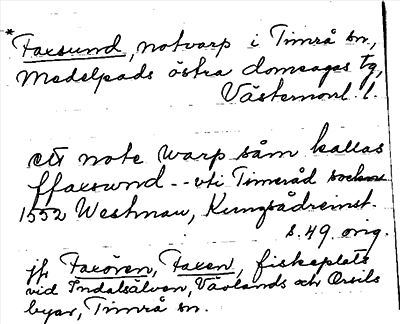 * Faxsund, notvarp i Timrå sn,
Medelpads östra domsagas tg,
Västernorrl. l.
ett note warp såm kallas
ffaxsund -- vti Timeråd sochnn
1552 Westman, Kungsådreinst.
s. 49. orig.
jfr Faxören, Faxen, fiskeplats
vid Indalsälven, Vävlands och Orsils
byar, Timrå sn.